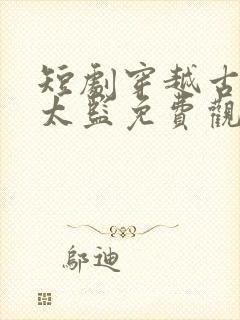 短劇穿越古
太監免費觀
鄔迪